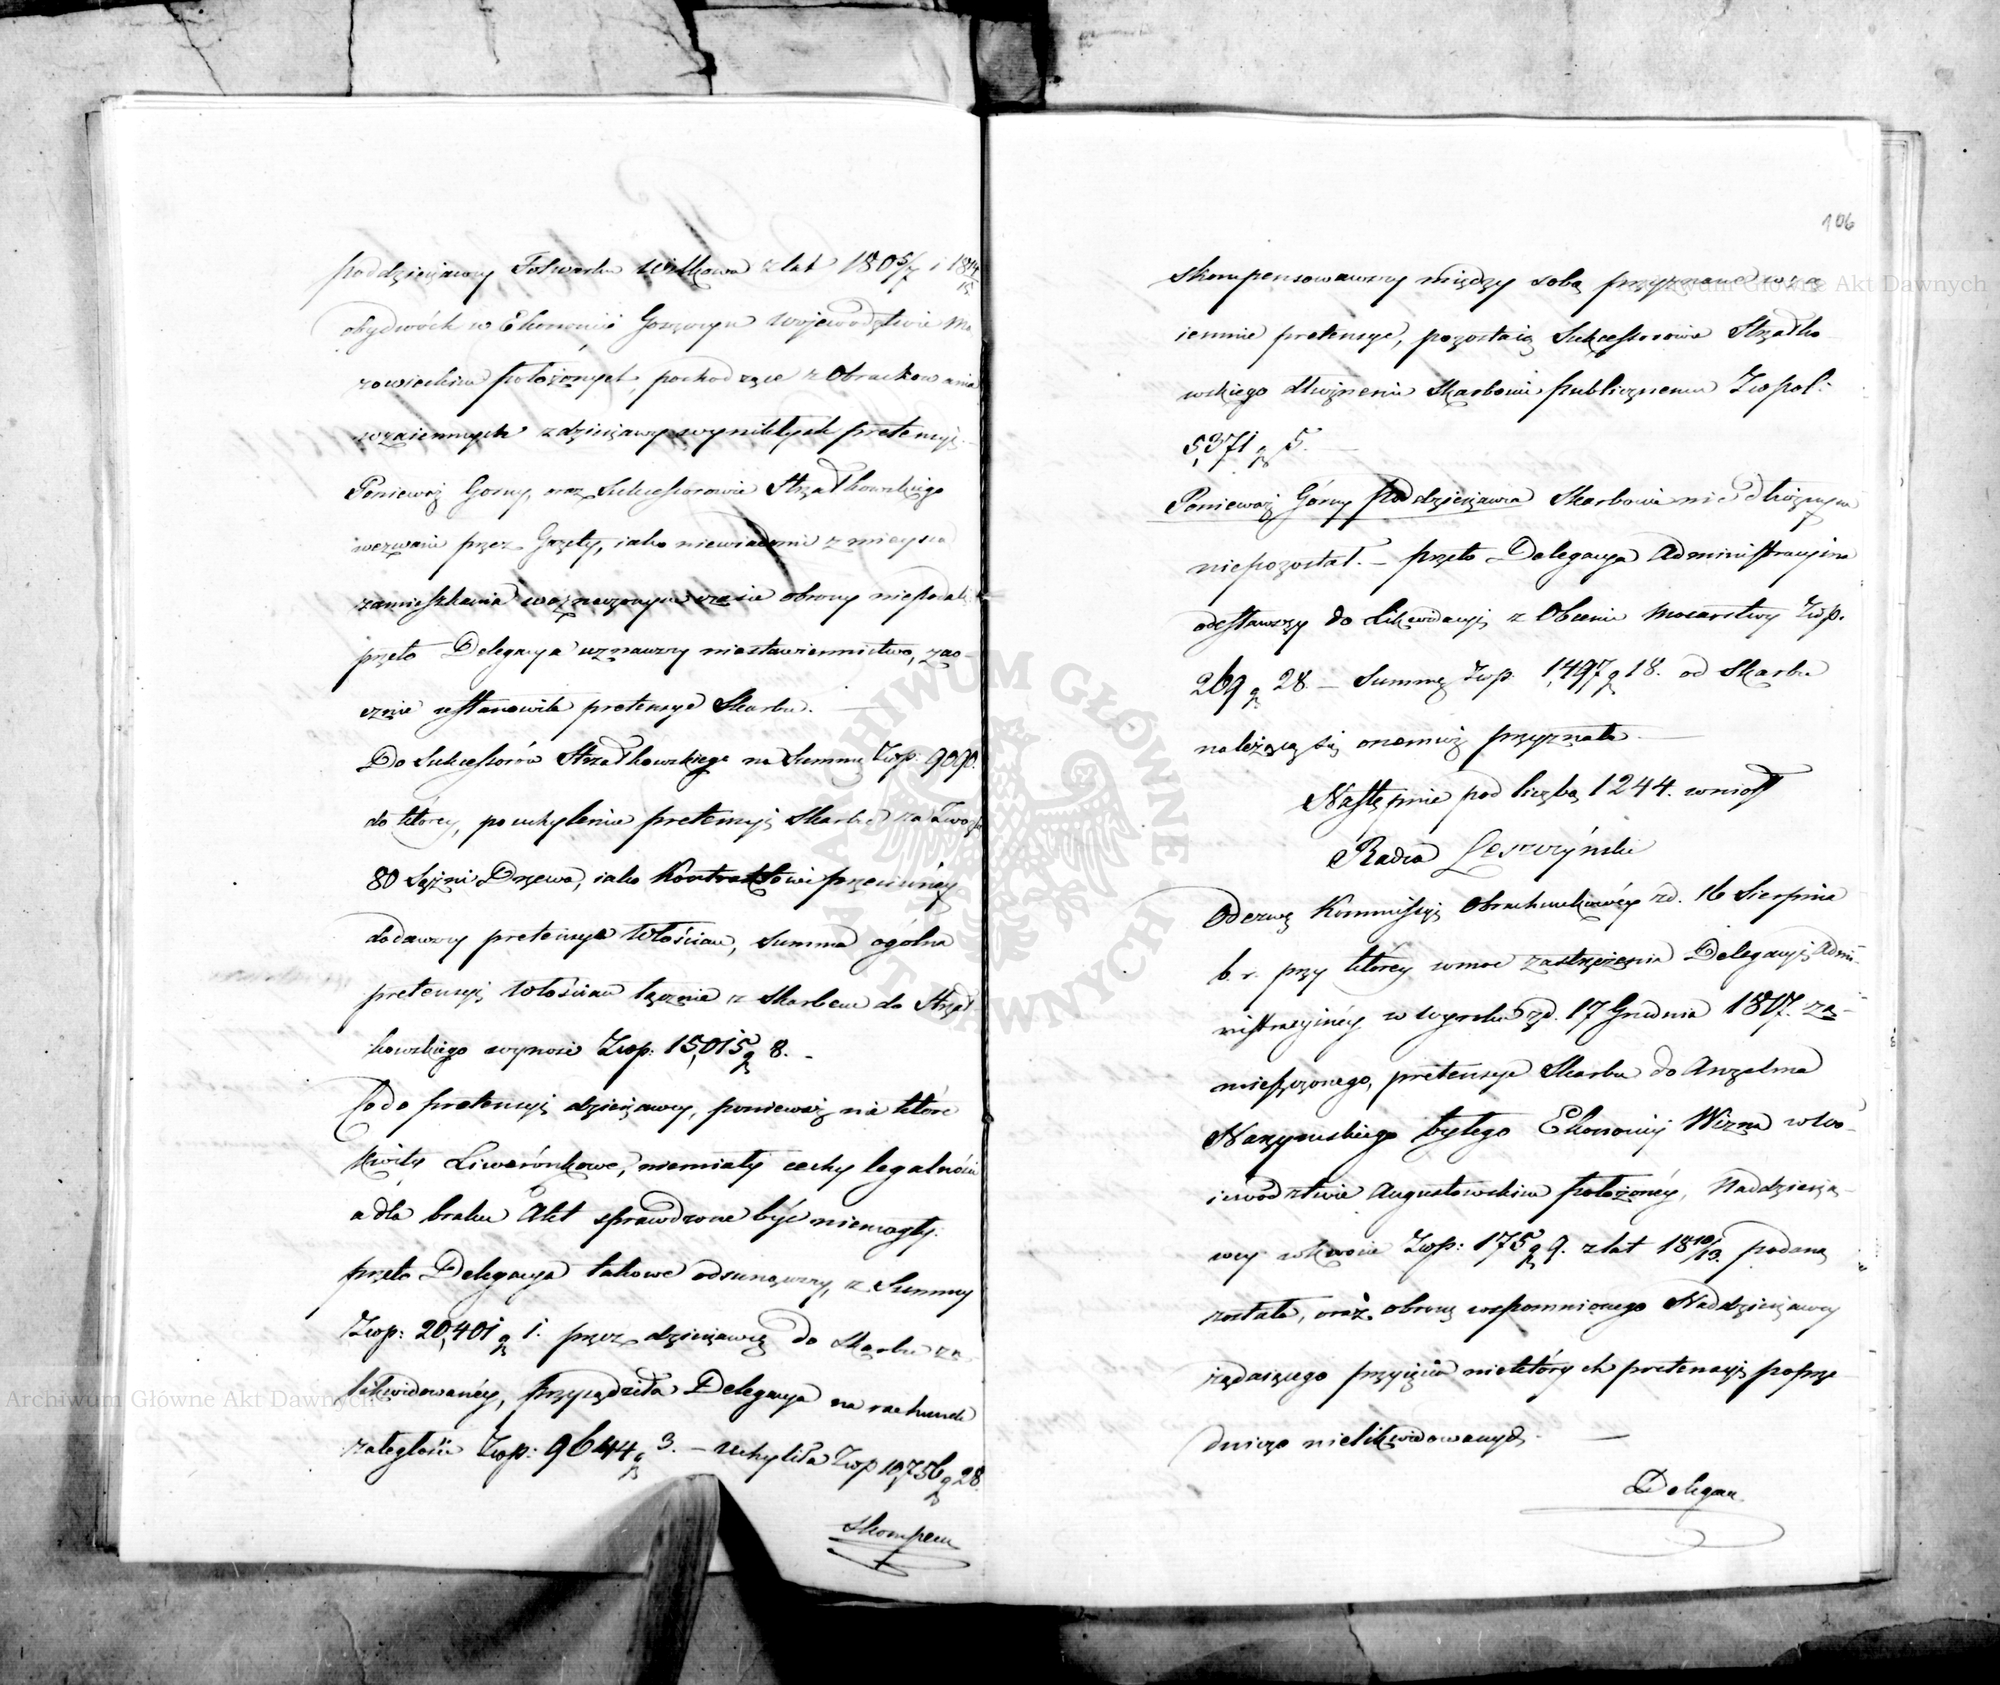 poddzierżawcy Folwarku Witkowa z lat 180 5/7 i 18 14/15
obydwóch w Ekonomii Goszczyn Województwie Ma
zowieckim położonych, pochodzące z Obrachowania
wzaiemnych z dzierżawy wynikłych pretensyi.
Ponieważ Gorny, oraz Sukcessorowie Strzałkowskiego
wezwani przez Gazety, iako niewiadomi z mieysca
zamieszkania w oznaczonym czasie obrony niepodali
przeto Delegacya uznawszy niestawiennictwo, zao-
cznie ustanowiła pretensye Skarbu. —
Do Sukcessorów Strzałkowskiego na Summę Złłp: 9090.
do którey, po uchyleniu pretensyi Skarbu za
80 Sążni Drzewa, iako Kontraktowi przeciwney
dodawszy pretensye Włościan, Summa ogólna
pretensyi Włościan łącznie z Skarbem do Strzał
kowskiego wynosi Złłp: 15,015 g 8. –
Co do pretensyi dzierżawcy, ponieważ nie które
Kwity Liwerónkowe, niemiały cechy legalności
a dla braku Akt sprawdzone być niemogły.
przeto Delegacya takowe odsunąwszy, z Summy
Złłp: 20,401 g 1. przez dzierżawcę do Skarbu za
likwidowaney, przysądziła Delegacya na rachunek
zaległości Złłp: 9644 g 3. – uchyliła Złłp 10,756 g 28.
Skompen
106
skompensowawszy między sobą przyznane wza
iemnie pretensye, pozostaią Sukcessorowie Strzałko
wskiego dłużnemi Skarbowi publicznemu Złłpol:
5,371 g 5. —
Ponieważ Górny poddzierżawca Skarbowi nic dłużnym
niepozostał. – przeto Delegacya Administracyina
odesławszy do Likwidacyi z Obcemi Mocarstwy Złłp.
269 g 28. – Summę Złłp. 1,497 g 18. od Skarbu
należącą się onemuż przyznała. —
Następnie pod liczbą 1244. wniosł
Radca Leszczyński
Odezwę Kommissyi Obrachunkowéy z d. 16 Sierpnia
b. r. przy którey w moc zastrzeżenia Delegacyi Admi-
nistracyinéy w wyroku z d. 17 Grudnia 1817. za-
mieszczonego, pretensye Skarbu do Anzelma
Narzymskiego byłego Ekonomii Wizna w Wo-
iewództwie Augustowskim położonéy, Naddzierża-
wcy w kwocie Złłp: 175 g 9. z lat 18 10/13. podana
została, oraz obronę wspomnionego Naddzierżawcy
żądaiącego przyięcia niektórych pretensyi poprze
dniczo nielikwidowanych. —
Delegac.
Archiwum Główne Akt Dawnych
Archiwum Główne Akt Dawnych
ARCHIWUM GŁÓWNE AKT DAWNYCH